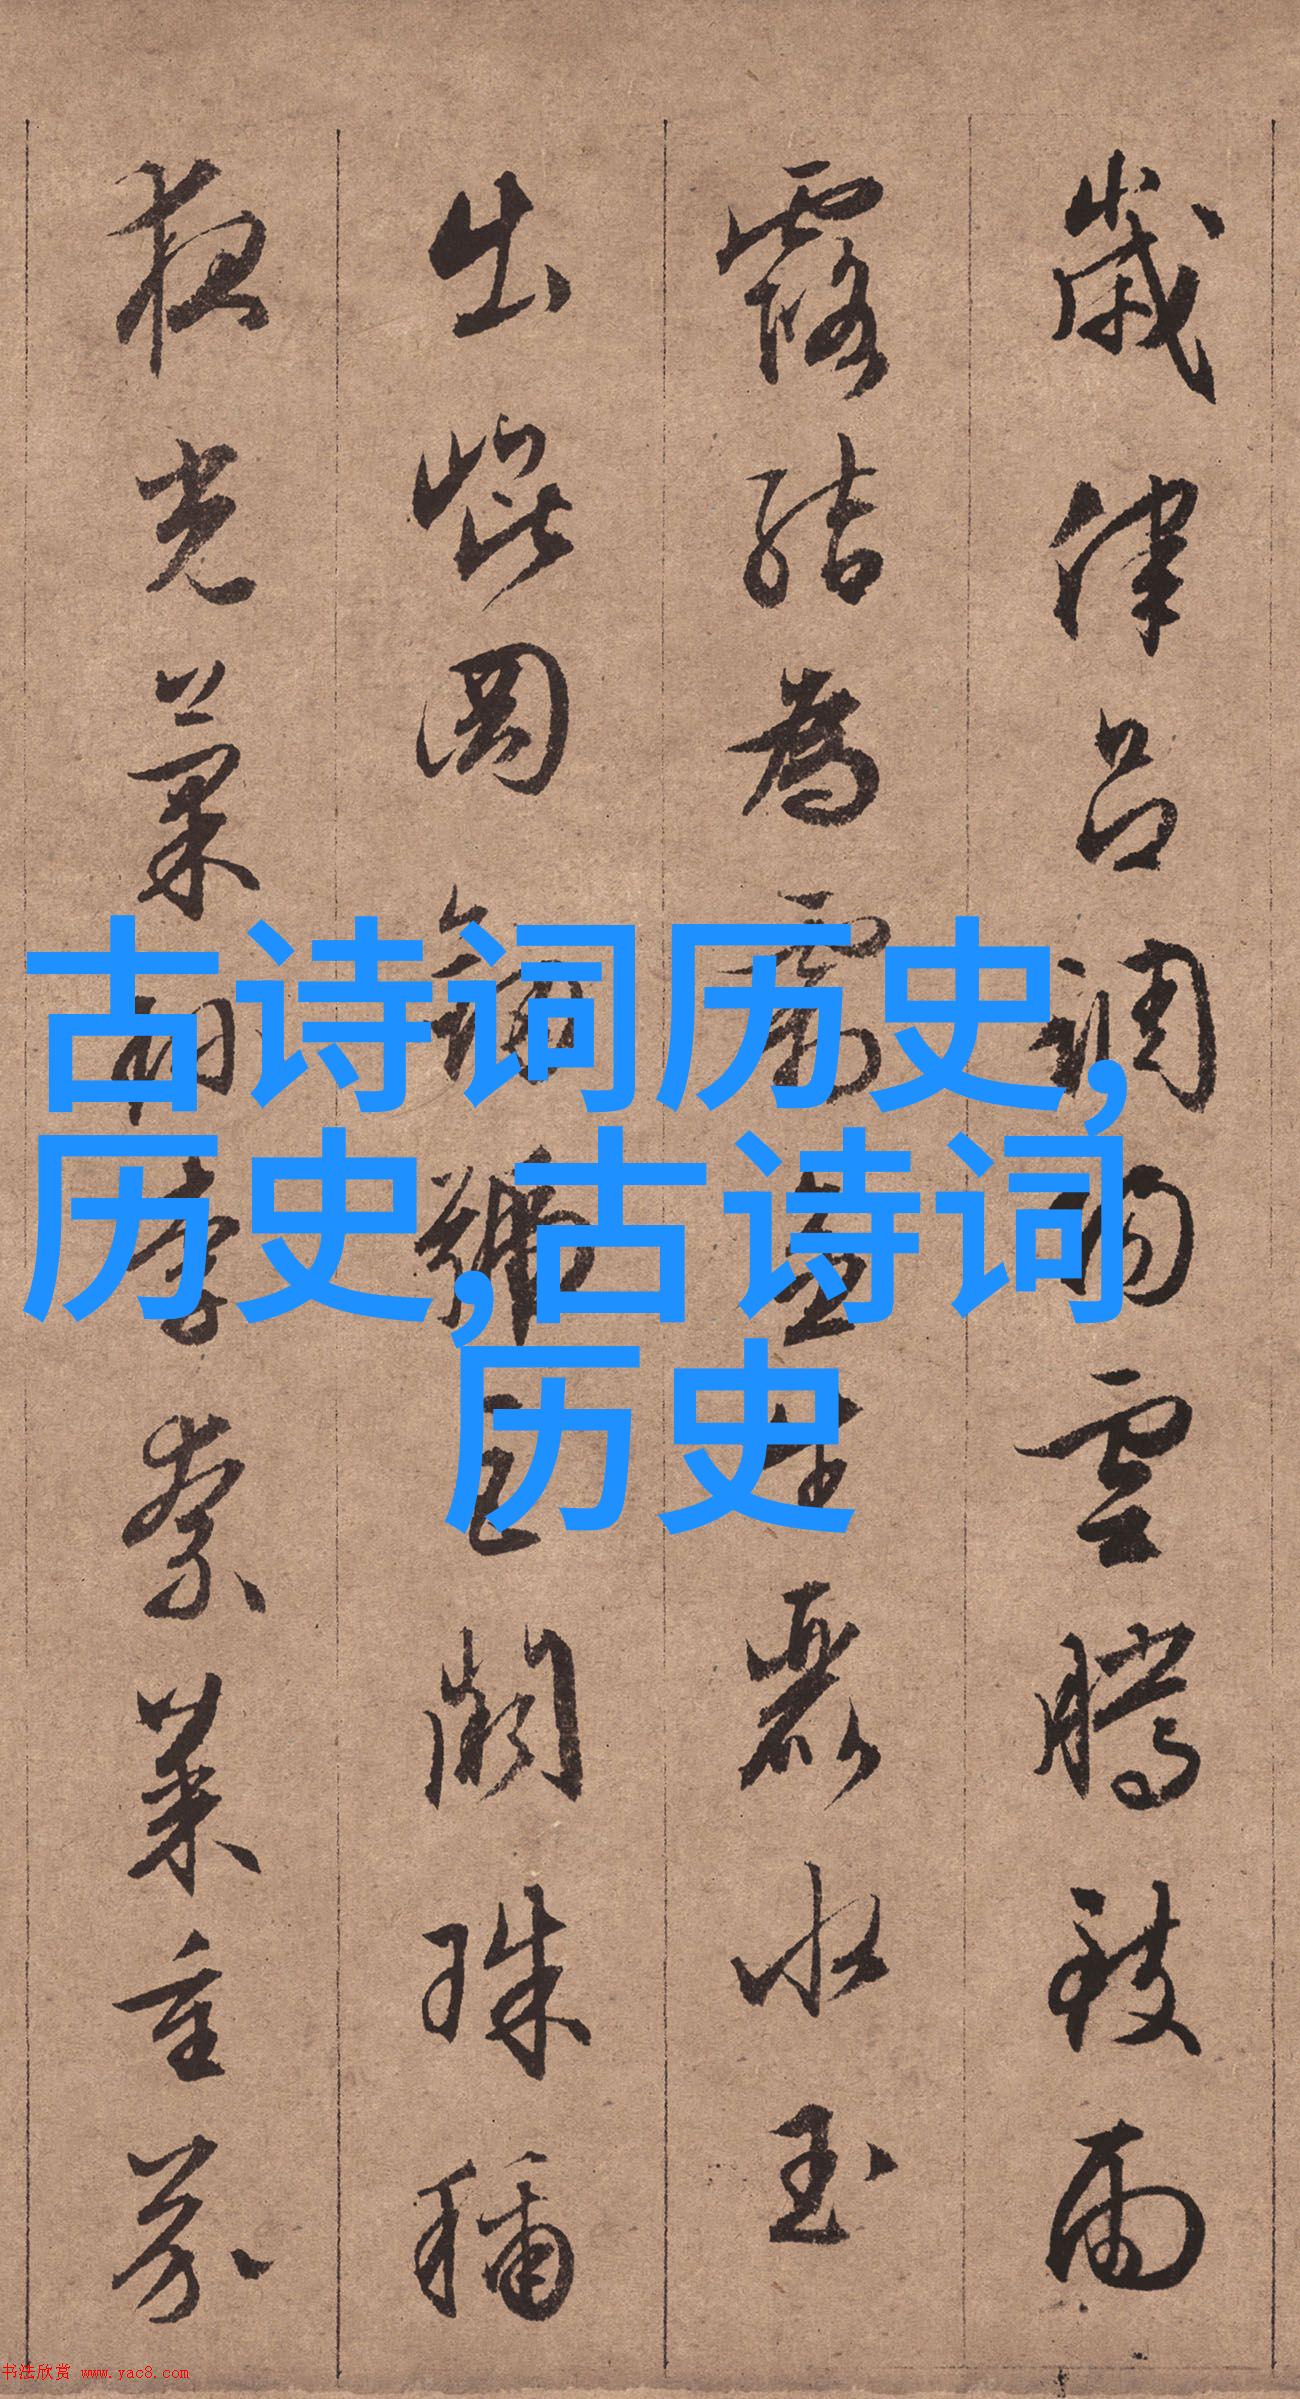 歲律呂調陽雲騰致雨
露結為霜金生麗水玉
出崐岡劍號巨闕珠稱
夜光菓珎李柰菜重芥
古诗词历史,
历史,古诗词
历史
书法欣赏 www.yac8.com